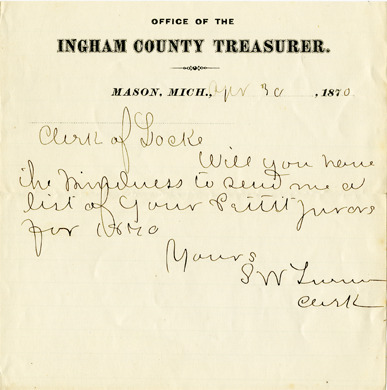 OFFICE OF THE
INGHAM COUNTY TREASURER.
MASON, MICH., Apr 30, 1870
Clerk of Locke
Will you have
the kindness to send me a
list of your Pettit Jurors
for 1870
Yours
S W
Clerk